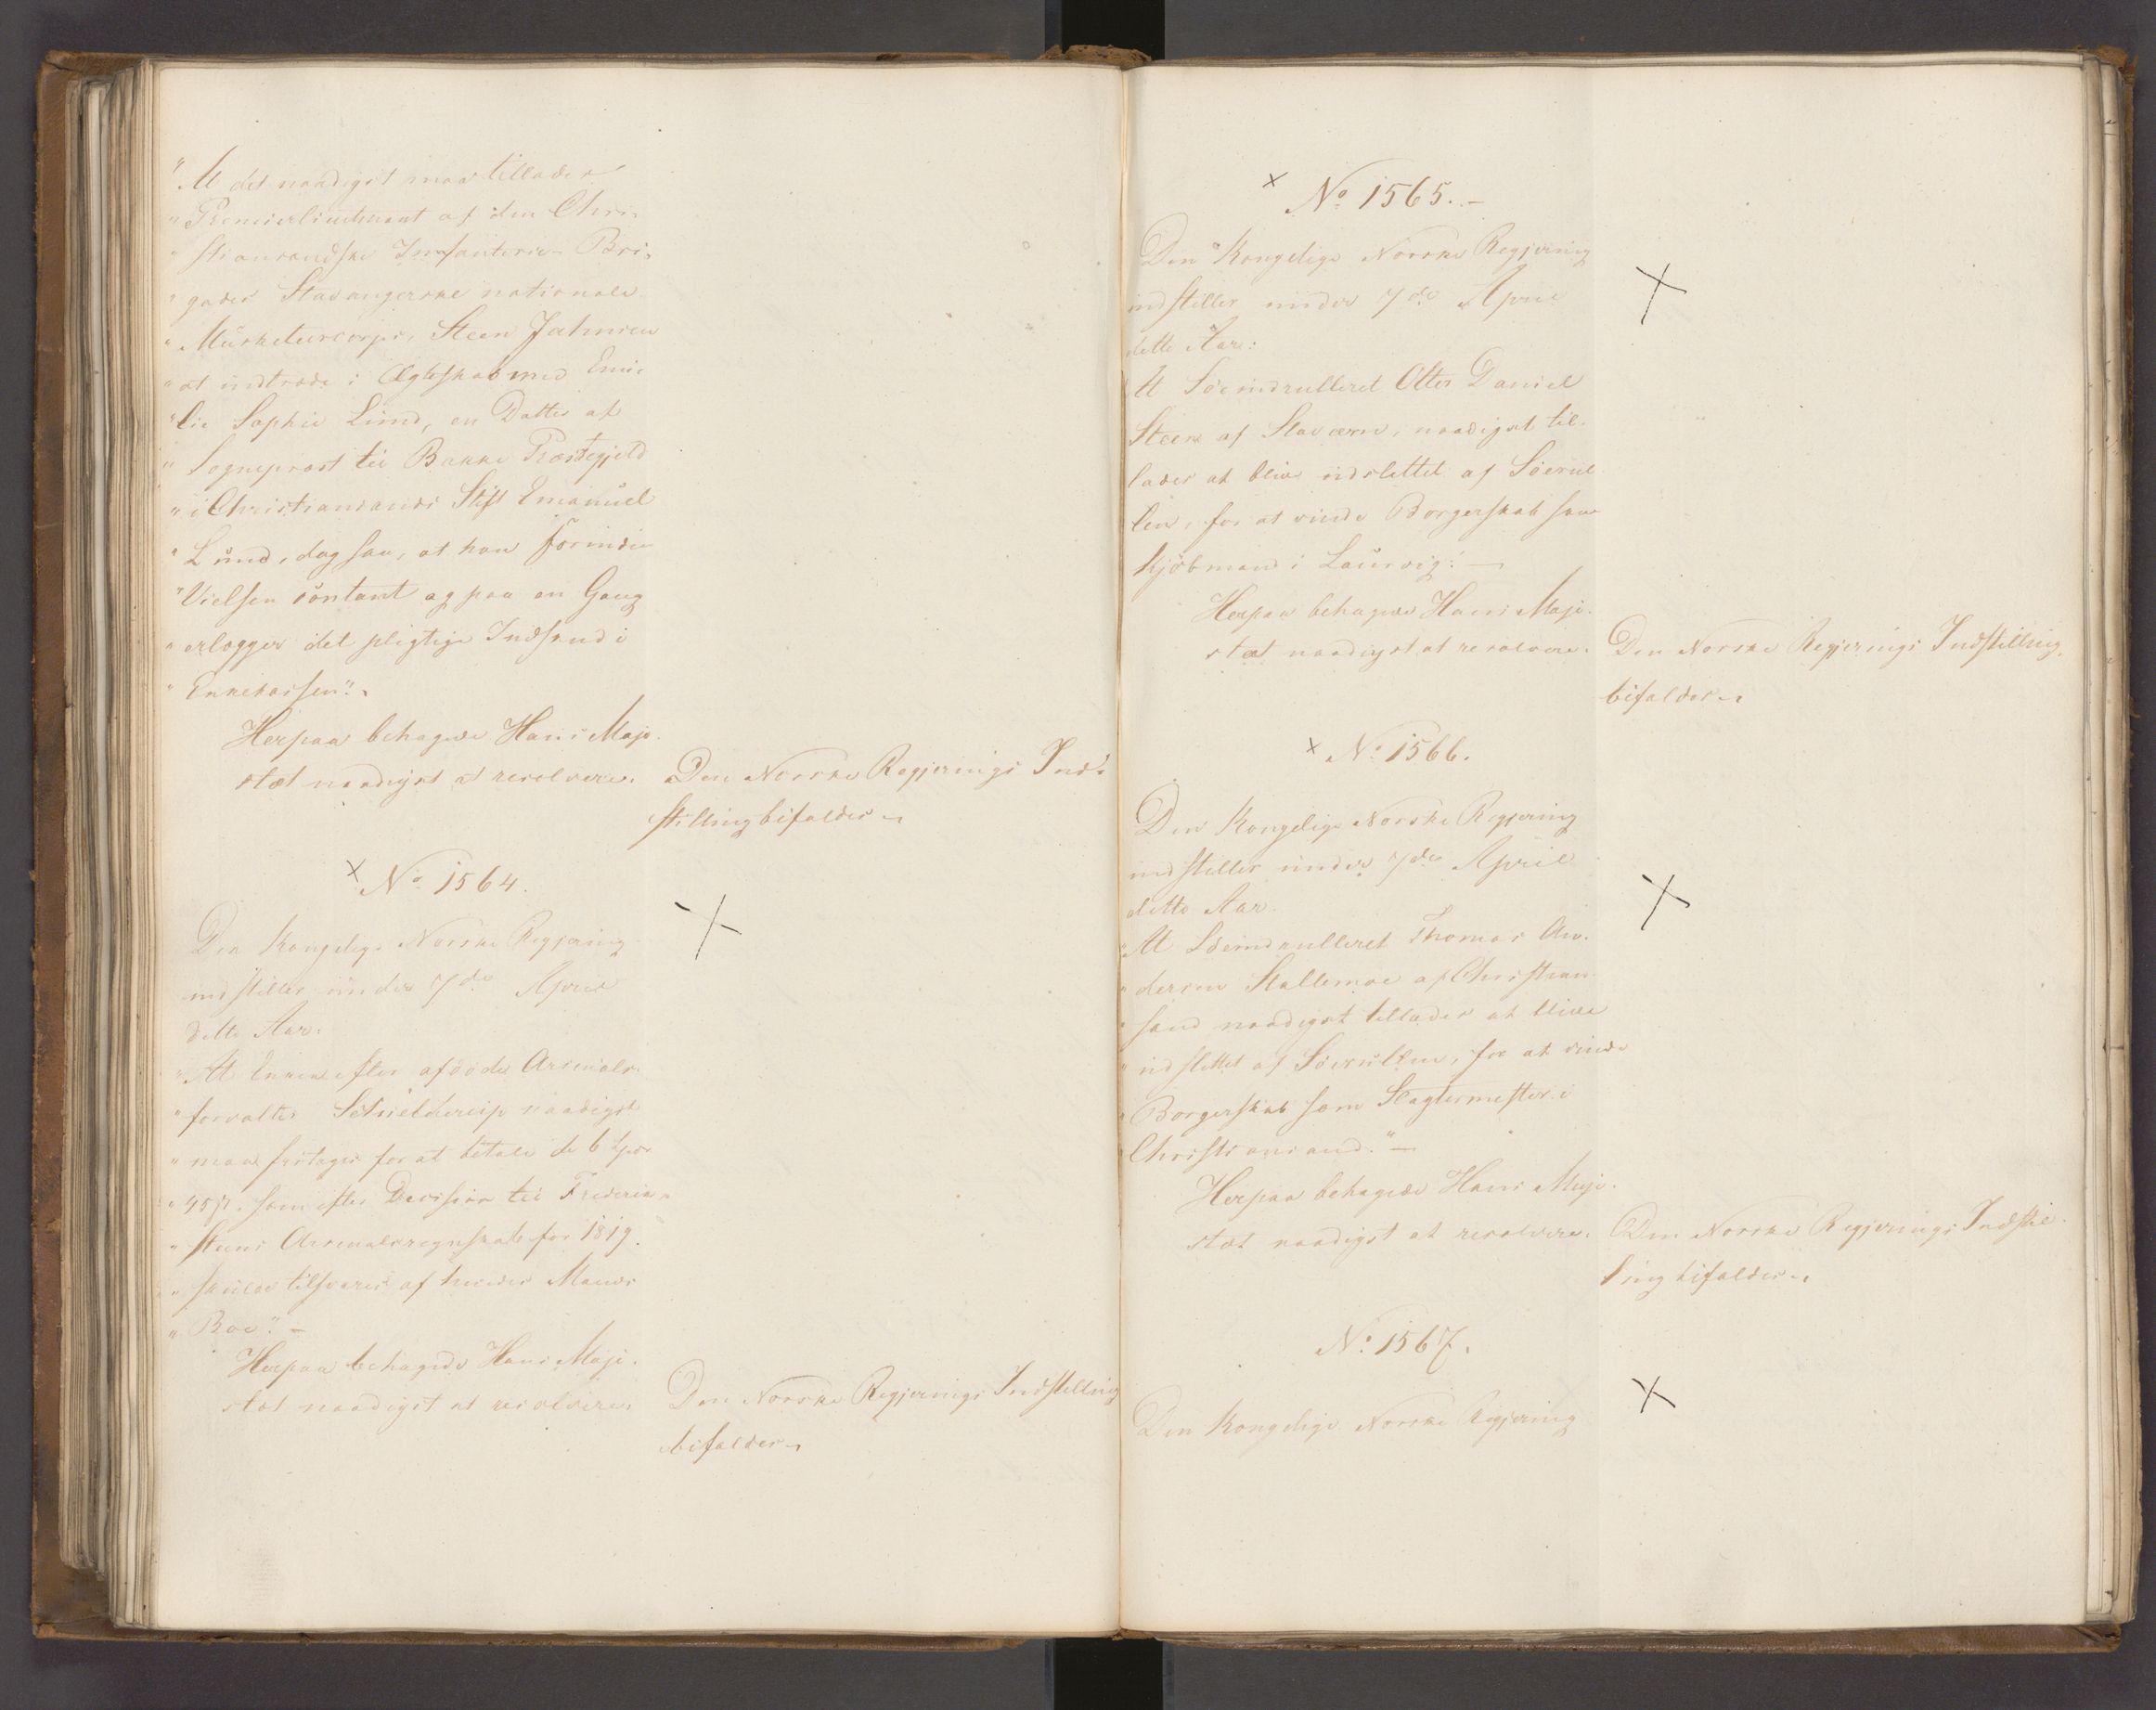 "At det naadigst maa tillades
"Premierlieutenant af den Chri-
"stiansandske Infanterie-Bri-
"gades Stavangerske nationale
"Musketeercorps, Steen
"at indtræde i Ægteskab med Emi-
"lie Sophie Lund, en Datter af
"Sognepræst til Bakke Præstegjeld
"i Christiansands Stift Emanuel
"Lund, dog saa, at han forinden
"Vielsen contant og paa en Gang
"erlægger det pligtige Indskud i
"Enkekassen".
Herpaa behagede Hans Maje-
stæt naadigst at resolvere.
Den Norske Regjerings Ind-
stilling bifaldes.
x No 1564.
Den Kongelige Norske Regjering
indstiller under 7de April
dette Aar:
"At Enken efter afdøde Arsenals-
"forvalter naadigst
"maa fritages for at betale de 6 Spd
"45 s. som efter Decision til Frederik-
"steens Arsenalsregnskab for 1819
"skulde tilsvares af hendes Mands
"Boe". -
Herpaa behagede Hans Maje-
stæt naadigst at resolvere.
Den Norske Regjerings Indstilling
bifaldes.
x No 1565. -
Den Kongelige Norske Regjering
indstiller under 7de April
dette Aar:
At Søeindrulleret Otter Daniel
Steen af Staværn, naadigst til-
lades at blive udslettet af Søerul-
len, for at vinde Borgerskab som
Kjøbmand i Laurvig: -
Herpaa behagede Hans Maje-
stæt naadigst at resolvere.
Den Norske Regjerings Indstilling
bifaldes.
x No 1566.
Den Kongelige Norske Regjering
indstiller under 7de April
dette Aar.
"At Søeindrulleret Thomas An-
"dersen Stallemoe af Christian-
"sand naadigst tillades at blive
"udslettet af Søerullen, for at vinde
"Borgerskab som Slagtermester i
Christiansand." -
Herpaa behagede Hans Maje-
stæt naadigst at resolvere.
Den Norske Regjerings Indstil-
ling bifaldes.
No 1567.
Den Kongelige Norske Regjering